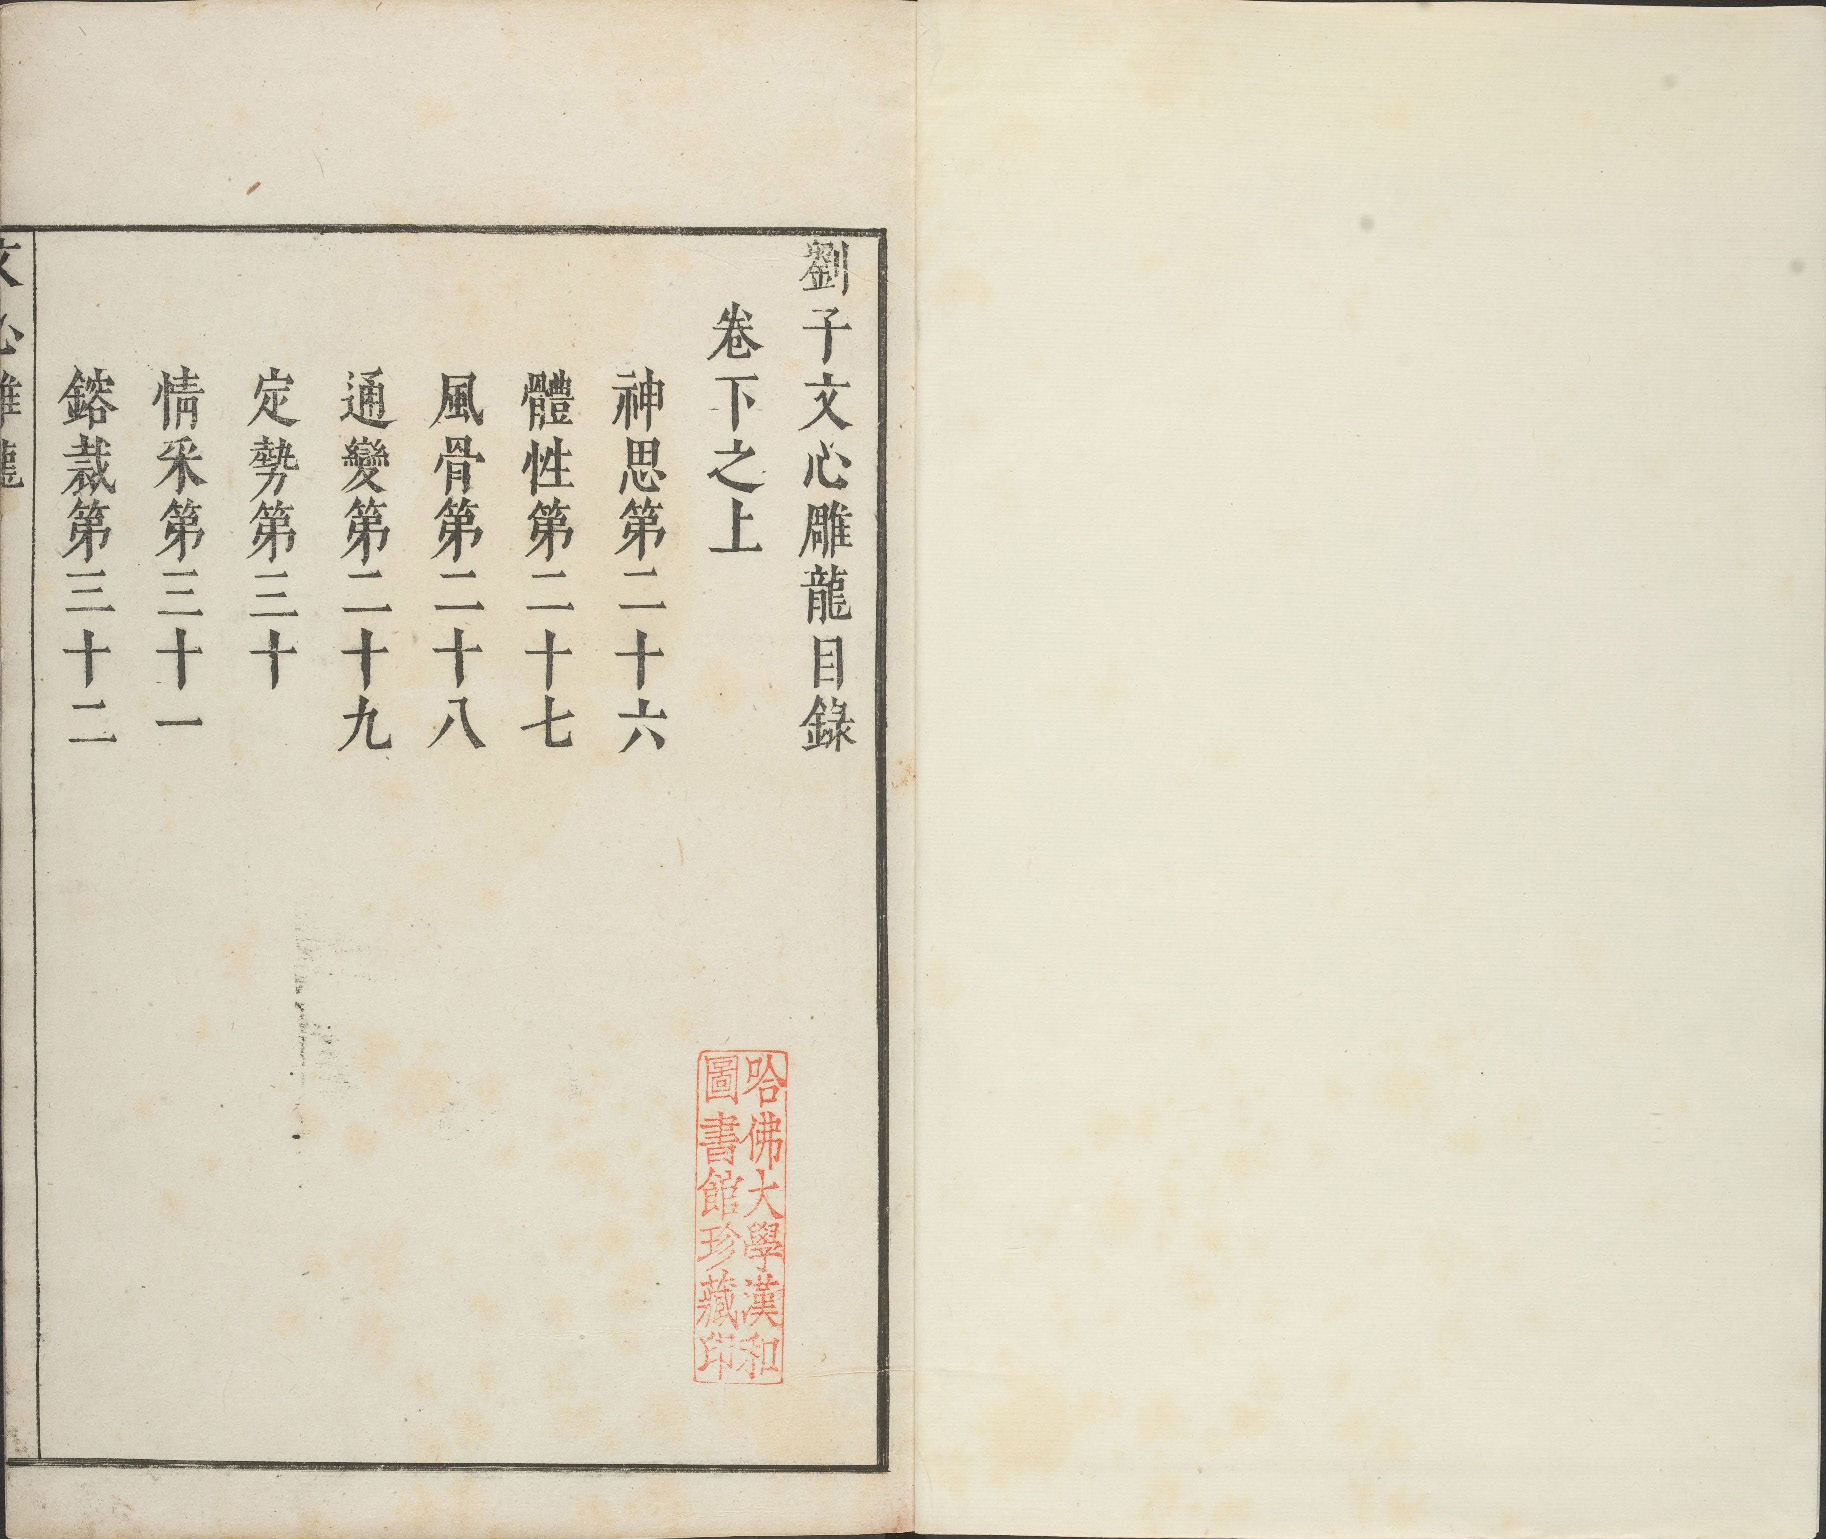 劉子文心雕龍目錄
卷下之上
神思第二十六
體性第二十七
風骨第二十八
通變第二十九
定勢第三十
情采第三十一
鎔裁第三十二
文心雕龍
哈佛大學漢和
圖書館珍藏印